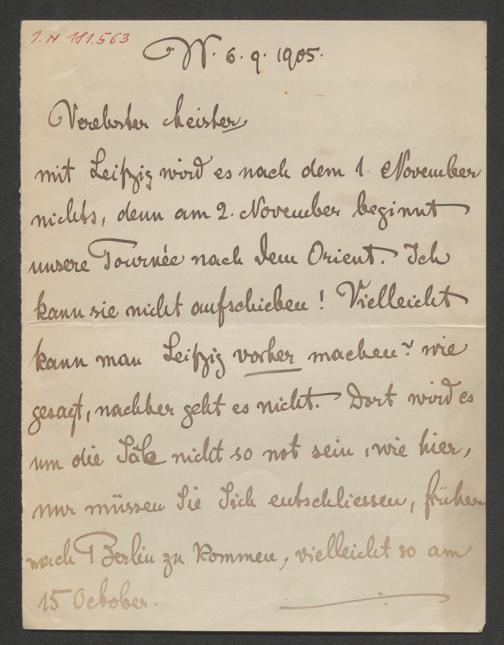 I.N. 181.563
W. 6. 9. 1905.
Verehrter Meister,
mit Leipzig wird es nach dem 1. November
nichts, denn am 2. November beginnt
unsere Tournée nach dem Orient. Ich
kann sie nicht aufschieben! Vielleicht
kann man Leipzig vorher machen? wie
gesagt, nachher geht es nicht. Dort wird es
um die Säle nicht so not sein, wie hier,
nur müssen Sie Sich entschliessen, früher
nach Berlin zu kommen, vielleicht so am
15 October.